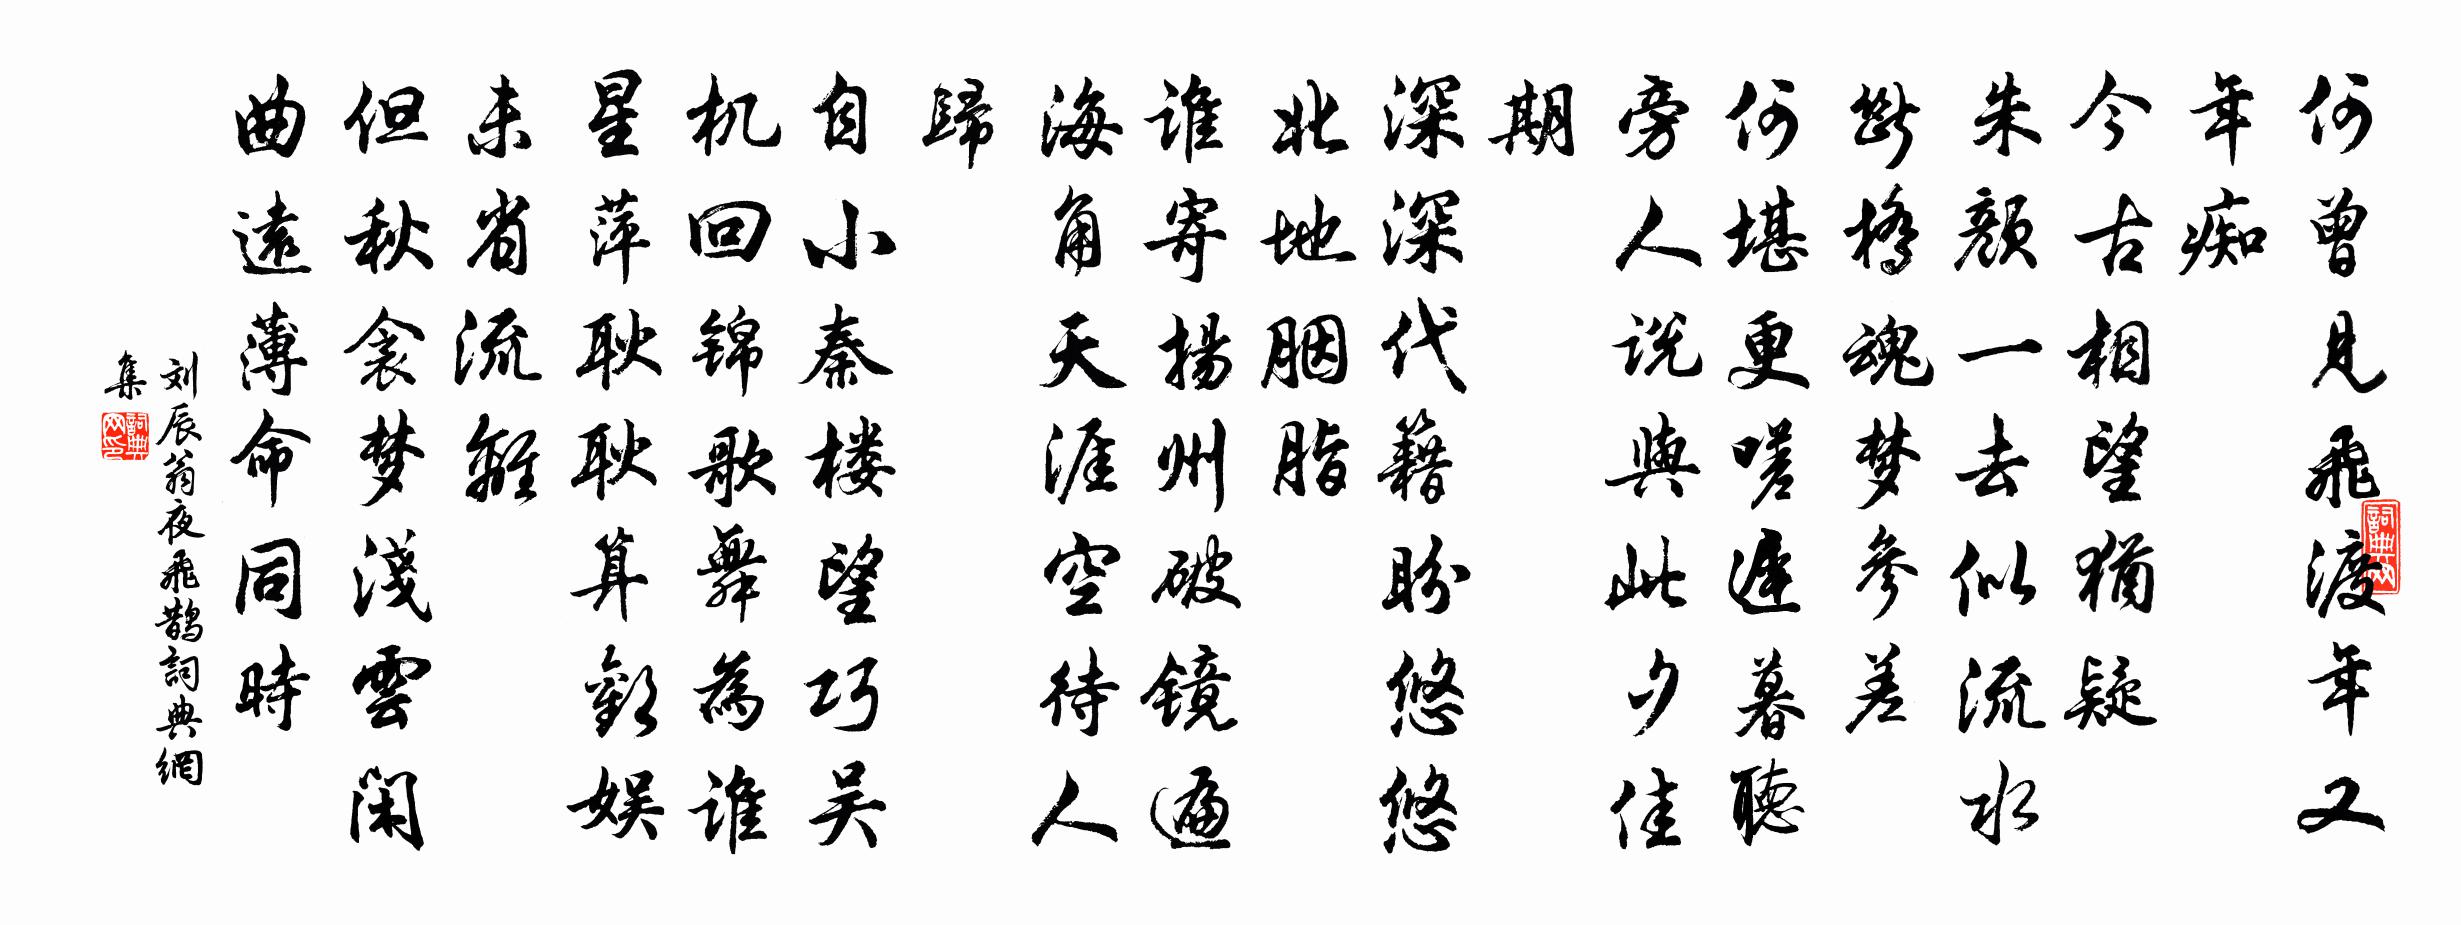 何曾見飛渡年又
年痴
今古相望猶疑
朱顏一去似流水
斷橋魂梦參差
何堪更嗟遲暮聽
旁人说與此夕佳
期
深深代籍盼悠悠
北地胭脂
谁寄揚州破镜遍
海角天涯空待人
歸
自小秦楼望巧吴
机回锦歌舞為谁
星萍耿耿算歡娱
未省流離
但秋衾梦淺雲闲
曲遠薄命同時
刘辰翁夜飛鵲詞典網
集
詞典網
詞典網印